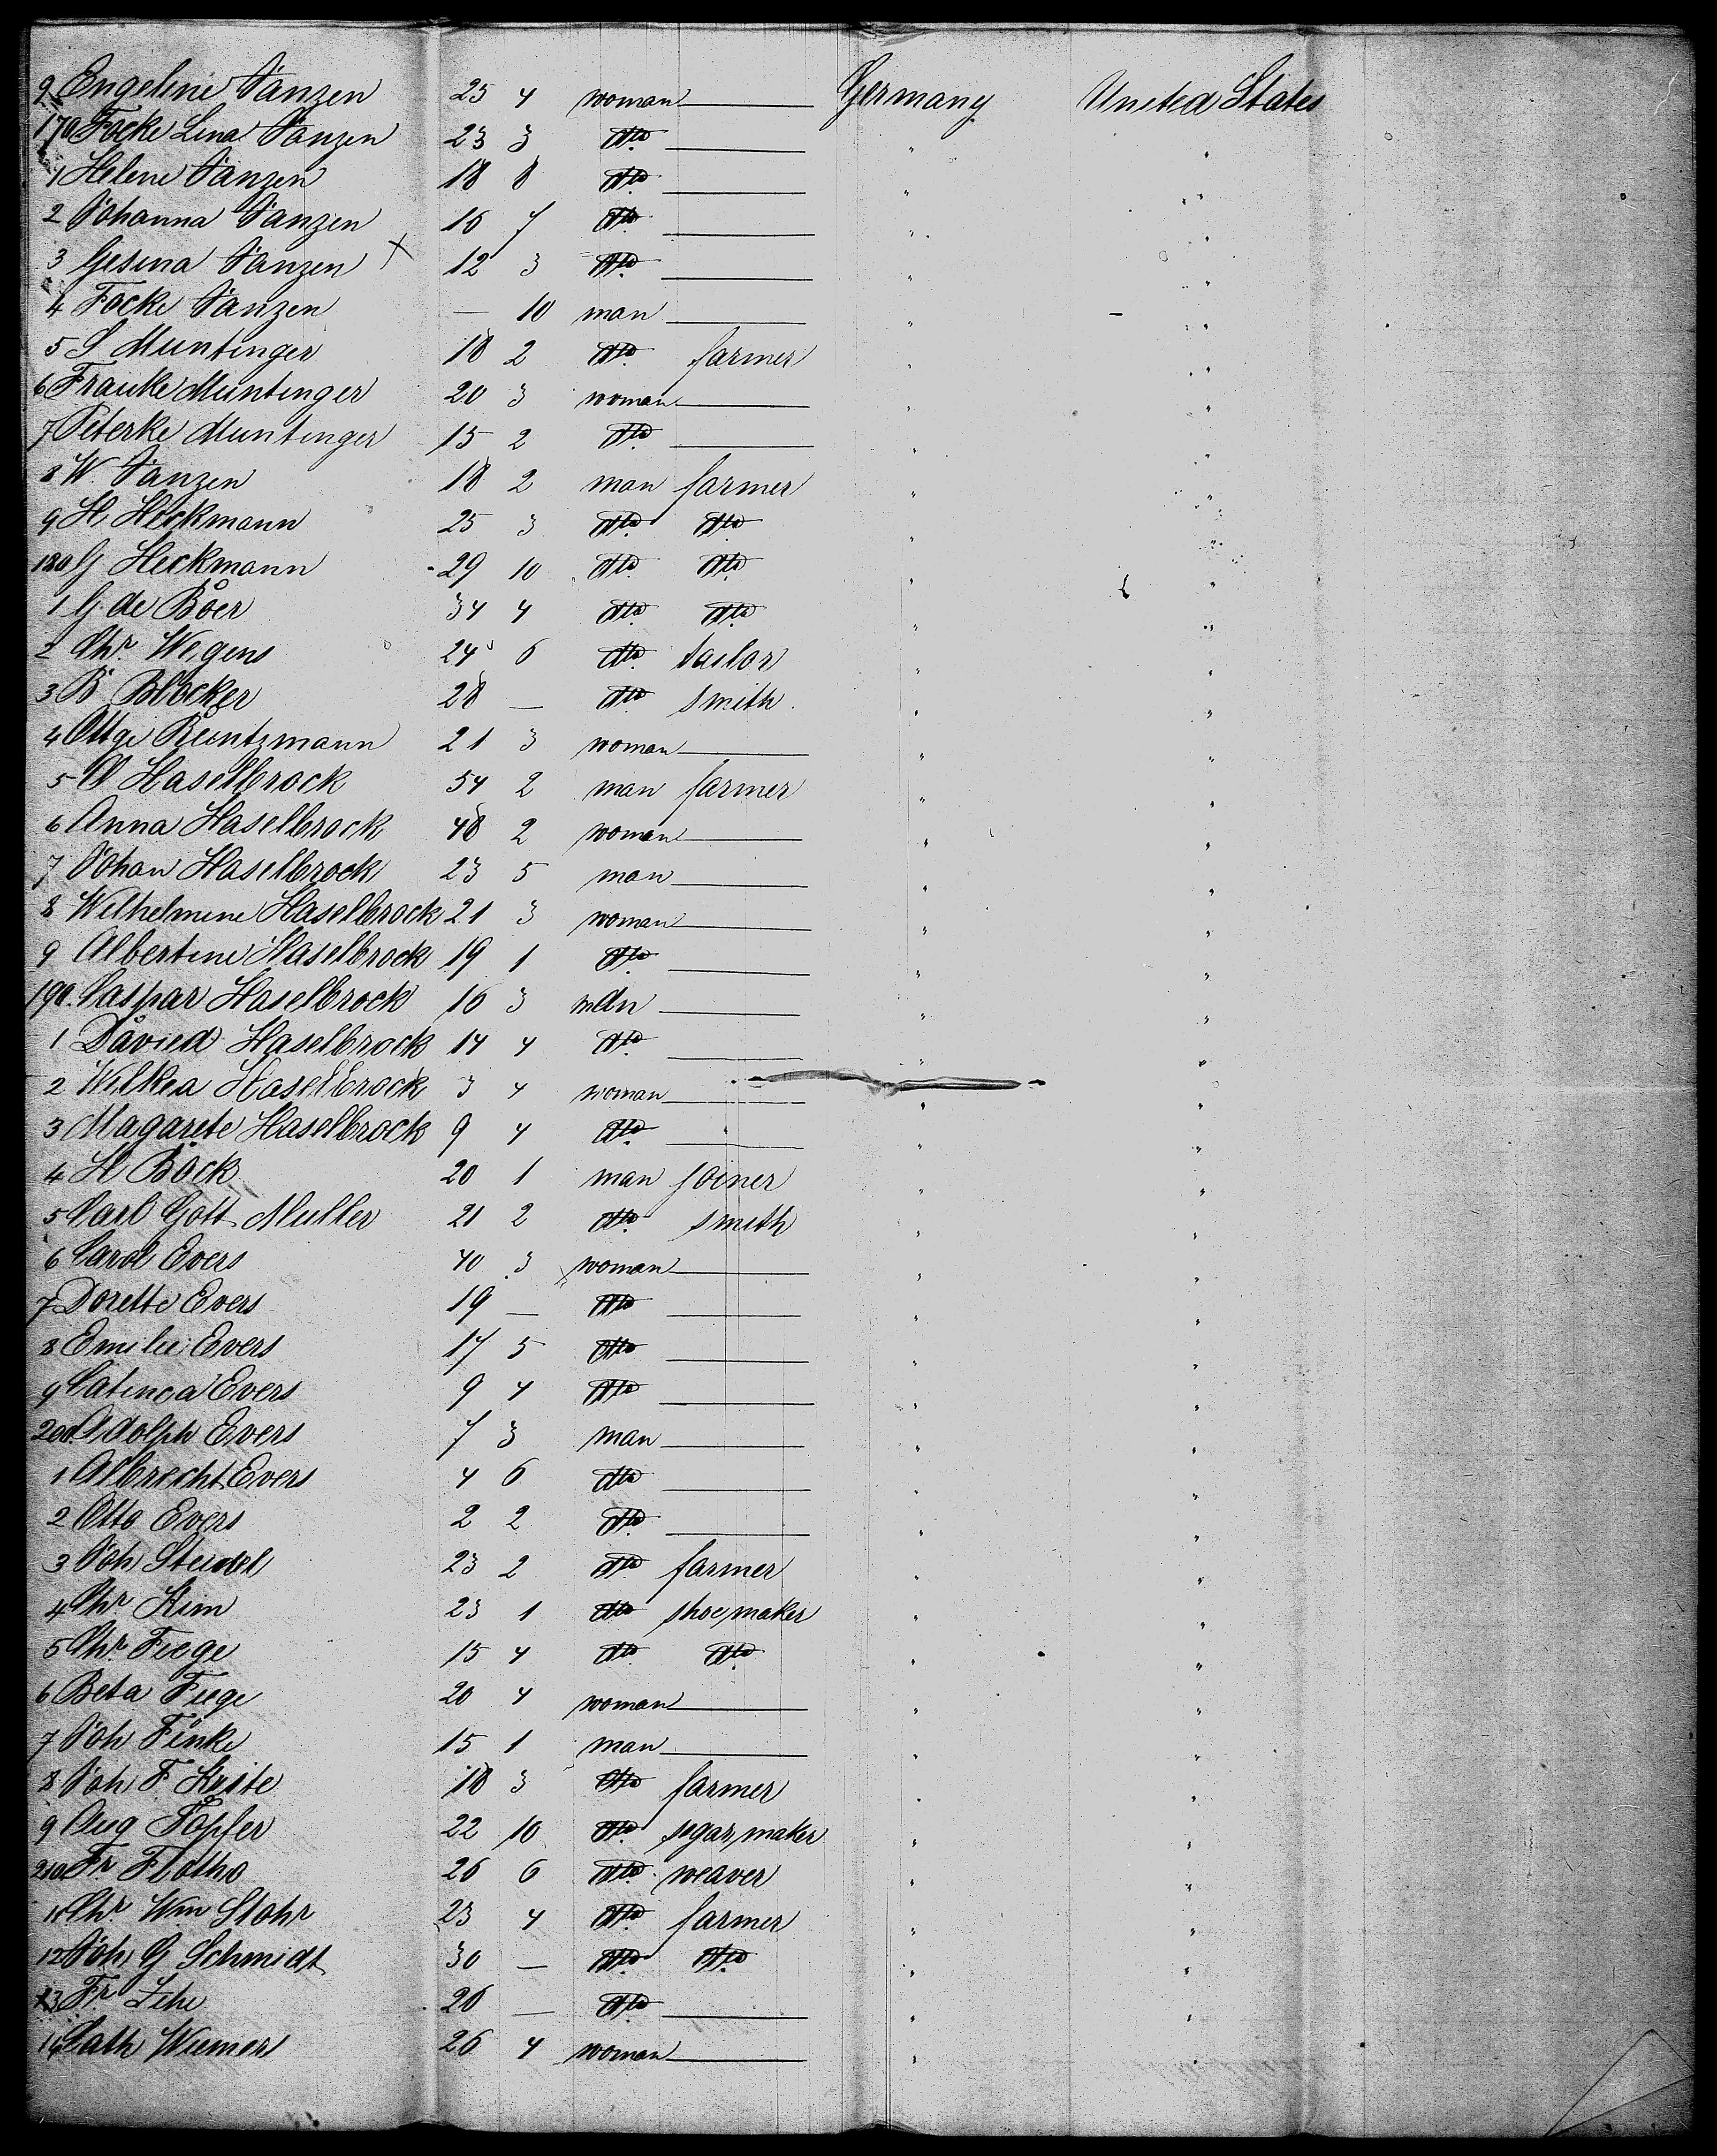 9 Engeline Janzen 25 4 woman Germany United States
170 Focke Lina Janzen 23 3 dto " "
1 Helene Janzen 18 8 dto " "
2 Johanna Janzen 16 7 dto " "
3 Gesina Janzen X 12 3 dto " "
4 Focke Janzen — 10 man " "
5 S Muntinger 18 2 dto farmer " "
6 Frauke Muntinger 20 3 woman " "
7 Peterke Muntinger 15 2 dto " "
8 W. Janzen 18 2 man farmer " "
9 H Heckmann 25 3 dto dto " "
180 G Heckmann 29 10 dto dto " "
1 G. de Boer 34 4 dto dto " "
2 Chr. Wegens 24 6 dto tailor " "
3 B Blocker 28 — dto smith " "
4 Ottge Buntzmann 21 3 woman " "
5 O Haselbrock 54 2 man farmer " "
6 Anna Haselbrock 48 2 woman " "
7 Johan Haselbrock 23 5 man " "
8 Wilhelmine Haselbrock 21 3 woman " "
9 Albertine Haselbrock 19 1 dto " "
190 Caspar Haselbrock 16 3 man " "
1 David Haselbrock 14 4 dto " "
2 Wilkea Haselbrock 3 4 woman " "
3 Magarete Haselbrock 9 4 dto " "
4 H Bock 20 1 man joiner " "
5 Carl Gott. Muller 21 2 dto smith " "
6 Carol Evers 40 3 woman " "
7 Dorette Evers 19 — dto " "
8 Emilie Evers 17 5 dto " "
9 Catinca Evers 9 4 dto " "
200 Adolph Evers 7 3 man " "
1 Albrecht Evers 4 6 dto " "
2 Otto Evers 2 2 dto " "
3 Joh Steidel 23 2 dto farmer " "
4 Chr. Kim 23 1 dto shoemaker " "
5 Chr. Fiege 15 4 dto dto " "
6 Beta Fiege 20 4 woman " "
7 Joh Finke 15 1 man " "
8 Joh F. Krite 18 3 dto farmer " "
9 Aug Töpfer 22 10 dto segar maker " "
210 Fr Flotho 26 6 dto weaver " "
11 Chr. Wm Stohr 23 4 dto farmer " "
12 Joh G Schmidt 30 — dto dto " "
13 Fr. Lihe 26 — dto " "
14 Cath Wiemers 26 4 woman " "